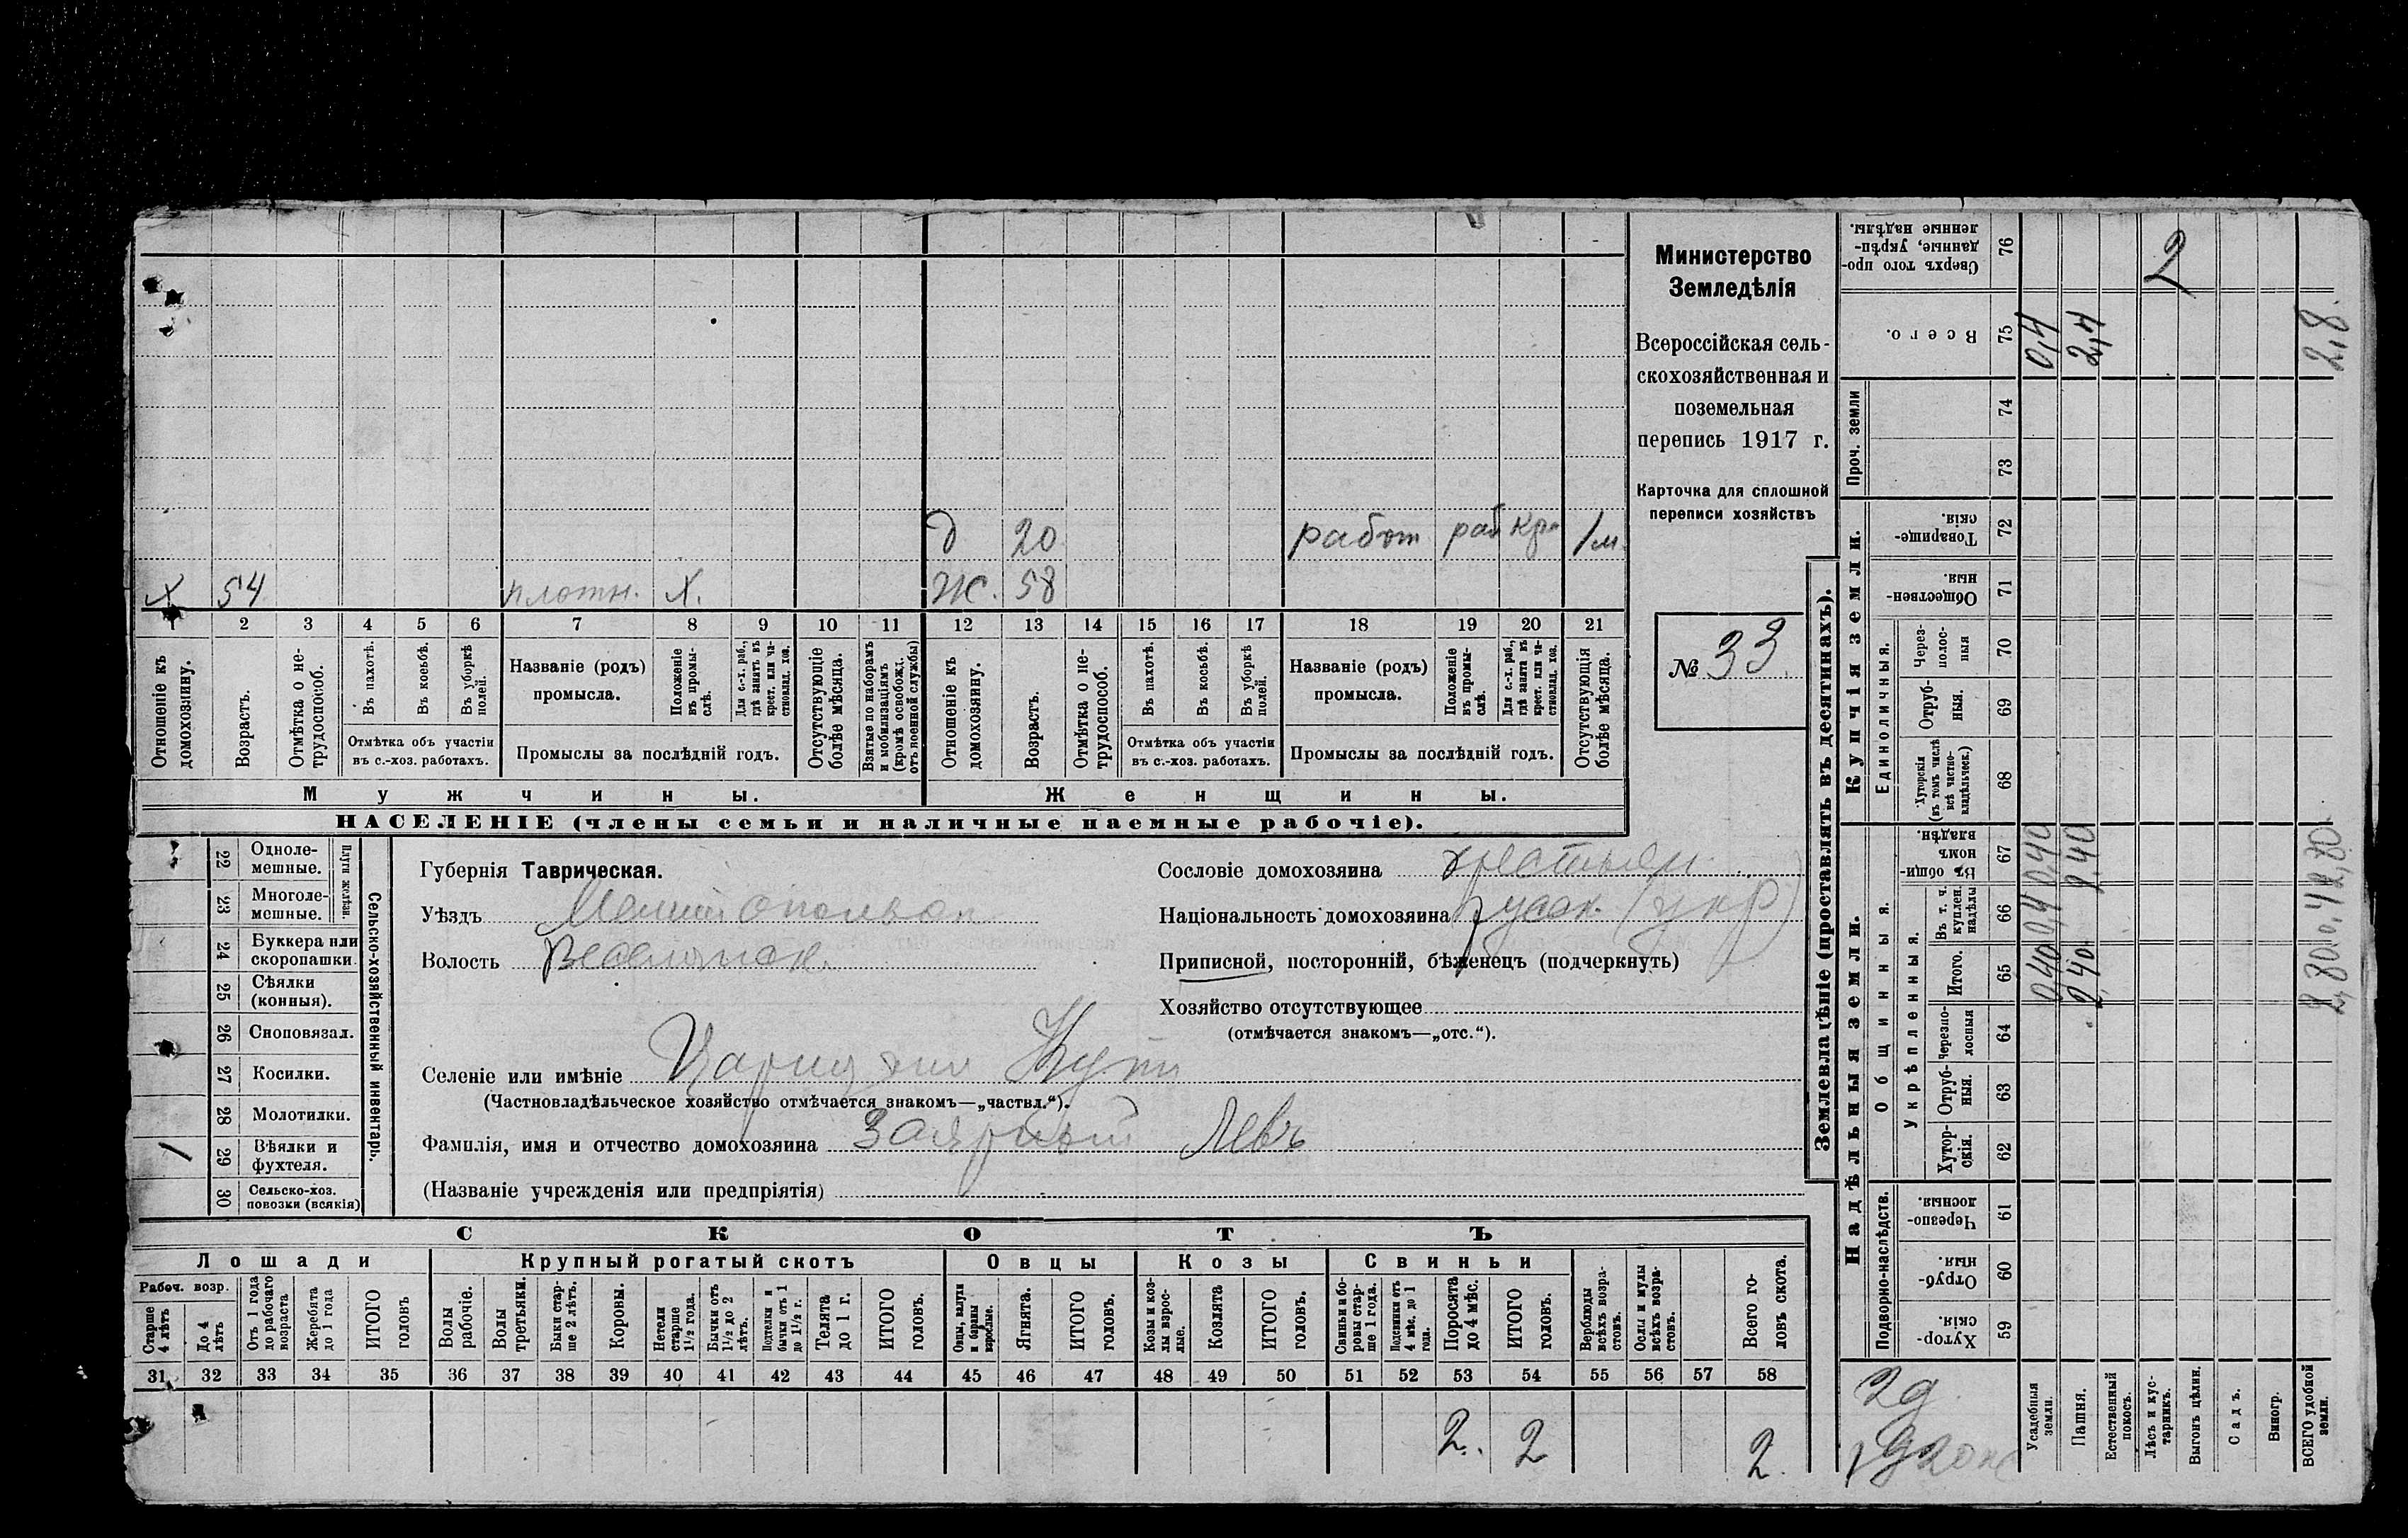 Министерство
Земледѣлія
Всероссійская сель-
скохозяйственная и
поземельная
перепись 1917 г.
Карточка для сплошной
переписи хозяйствъ
№ 33
д 20 работ раб кр 1 м
х 54 плотн. х. ж. 58
1 2 3 4 5 6 7 8 9 10 11 12 13 14 15 16 17 18 19 20 21
Отношеніе къ домохозяину.
Возрастъ.
Отмѣтка о не-трудоспособ.
Въ пахотѣ.
Въ косьбѣ.
Въ уборкѣ полей.
Отмѣтка объ участіи
въ с.-хоз. работахъ.
Названіе (родъ)
промысла.
Положеніе въ промы-слѣ.
Для с.-х. раб., гдѣ занятъ въ крест. или ча-стновлад. хоз.
Промыслы за послѣдній годъ.
Отсутствующіе болѣе мѣсяца.
Взятые по наборамъ и мобилизаціямъ (кромѣ освобожд. отъ военной службы)
Отношеніе къ домохозяину.
Возрастъ.
Отмѣтка о не-трудоспособ.
Въ пахотѣ.
Въ косьбѣ.
Въ уборкѣ полей.
Отмѣтка объ участіи
въ с.-хоз. работахъ.
Названіе (родъ)
промысла.
Положеніе въ промы-слѣ.
Для с.-х. раб., гдѣ занята въ крест. или ча-стновлад. хоз.
Промыслы за послѣдній годъ.
Отсутствующія болѣе мѣсяца.
Мужчины. Женщины.
НАСЕЛЕНІЕ (члены семьи и наличные наемные рабочіе).
Сельско-хозяйственный инвентарь.
Плуги желѣзн.
22 Одноле-мешные.
23 Многоле-мешные.
24 Буккера или скоропашки.
25 Сѣялки (конныя).
26 Сноповязал.
27 Косилки.
28 Молотилки.
/ 29 Вѣялки и фухтеля.
30 Сельско-хоз. повозки (всякія)
Губернія Таврическая.
Уѣздъ
Волость
Селеніе или имѣніе Кутъ
(Частновладѣльческое хозяйство отмѣчается знакомъ—„частвл.“).
Фамилія, имя и отчество домохозяина Левъ
(Названіе учрежденія или предпріятія)
Сословіе домохозяина крестьян.
Національность домохозяина русск. (укр)
Приписной, посторонній, бѣженецъ (подчеркнуть)
Хозяйство отсутствующее
(отмѣчается знакомъ—„отс.“).
СКОТЪ
Лошади Крупный рогатый скотъ Овцы Козы Свиньи
Рабоч. возр.
Старше 4 лѣтъ
До 4 лѣтъ
Отъ 1 года до рабочаго возраста
Жеребята до 1 года
ИТОГО головъ
Волы рабочіе.
Волы третьяки.
Быки стар-ше 2 лѣтъ.
Коровы.
Нетели старше 1½ года.
Бычки отъ 1½ до 2 лѣтъ.
Подтелки и бычки отъ 1 до 1½ г.
Телята до 1 г.
ИТОГО головъ.
Овцы, валухи и бараны взрослые.
Ягнята.
ИТОГО головъ.
Козы и коз-лы взрос-лые.
Козлята
ИТОГО головъ.
Свиньи и бо-ровы стар-ше 1 года.
Подсвинки отъ 4 мѣс. до 1 года.
Поросята до 4 мѣс.
ИТОГО головъ.
Верблюды всѣхъ возра-стовъ.
Ослы и мулы всѣхъ возра-стовъ.
Всего го-ловъ скота.
31 32 33 34 35 36 37 38 39 40 41 42 43 44 45 46 47 48 49 50 51 52 53 54 55 56 57 58
2. 2 2.
Землевладѣніе (проставлять въ десятинахъ).
Надѣльныя земли. Купчія земли. Проч. земли
Подворно-наслѣдств.
Общинныя.
Укрѣпленныя.
Единоличныя.
59 Хутор-скія.
60 Отруб-ныя.
61 Черезпо-лосныя.
62 Хутор-скія.
63 Отруб-ныя.
64 Черезпо-лосныя
65 Итого.
66 Въ т. ч. куплен. надѣлы
67 Въ общи-номъ владѣн.
68 Хуторскія (въ томъ числѣ всѣ частно-владѣльческ.)
69 Отруб-ныя.
70 Через-полос-ныя
71 Обществен-ныя.
72 Товарище-скія.
73
74
75 Всего.
76 Сверхъ того про-данные, укрѣп-ленные надѣлы.
Усадебныя земли. 0,40 0,4 0,40 0,4
Пашня. 2,40 2,40 2,4
Естественный покосъ.
Лѣсъ и кус-тарникъ. 2
Выгонъ цѣлин.
Садъ.
Виногр.
ВСЕГО удобной земли. 2,80 0,4 2,80 2,8